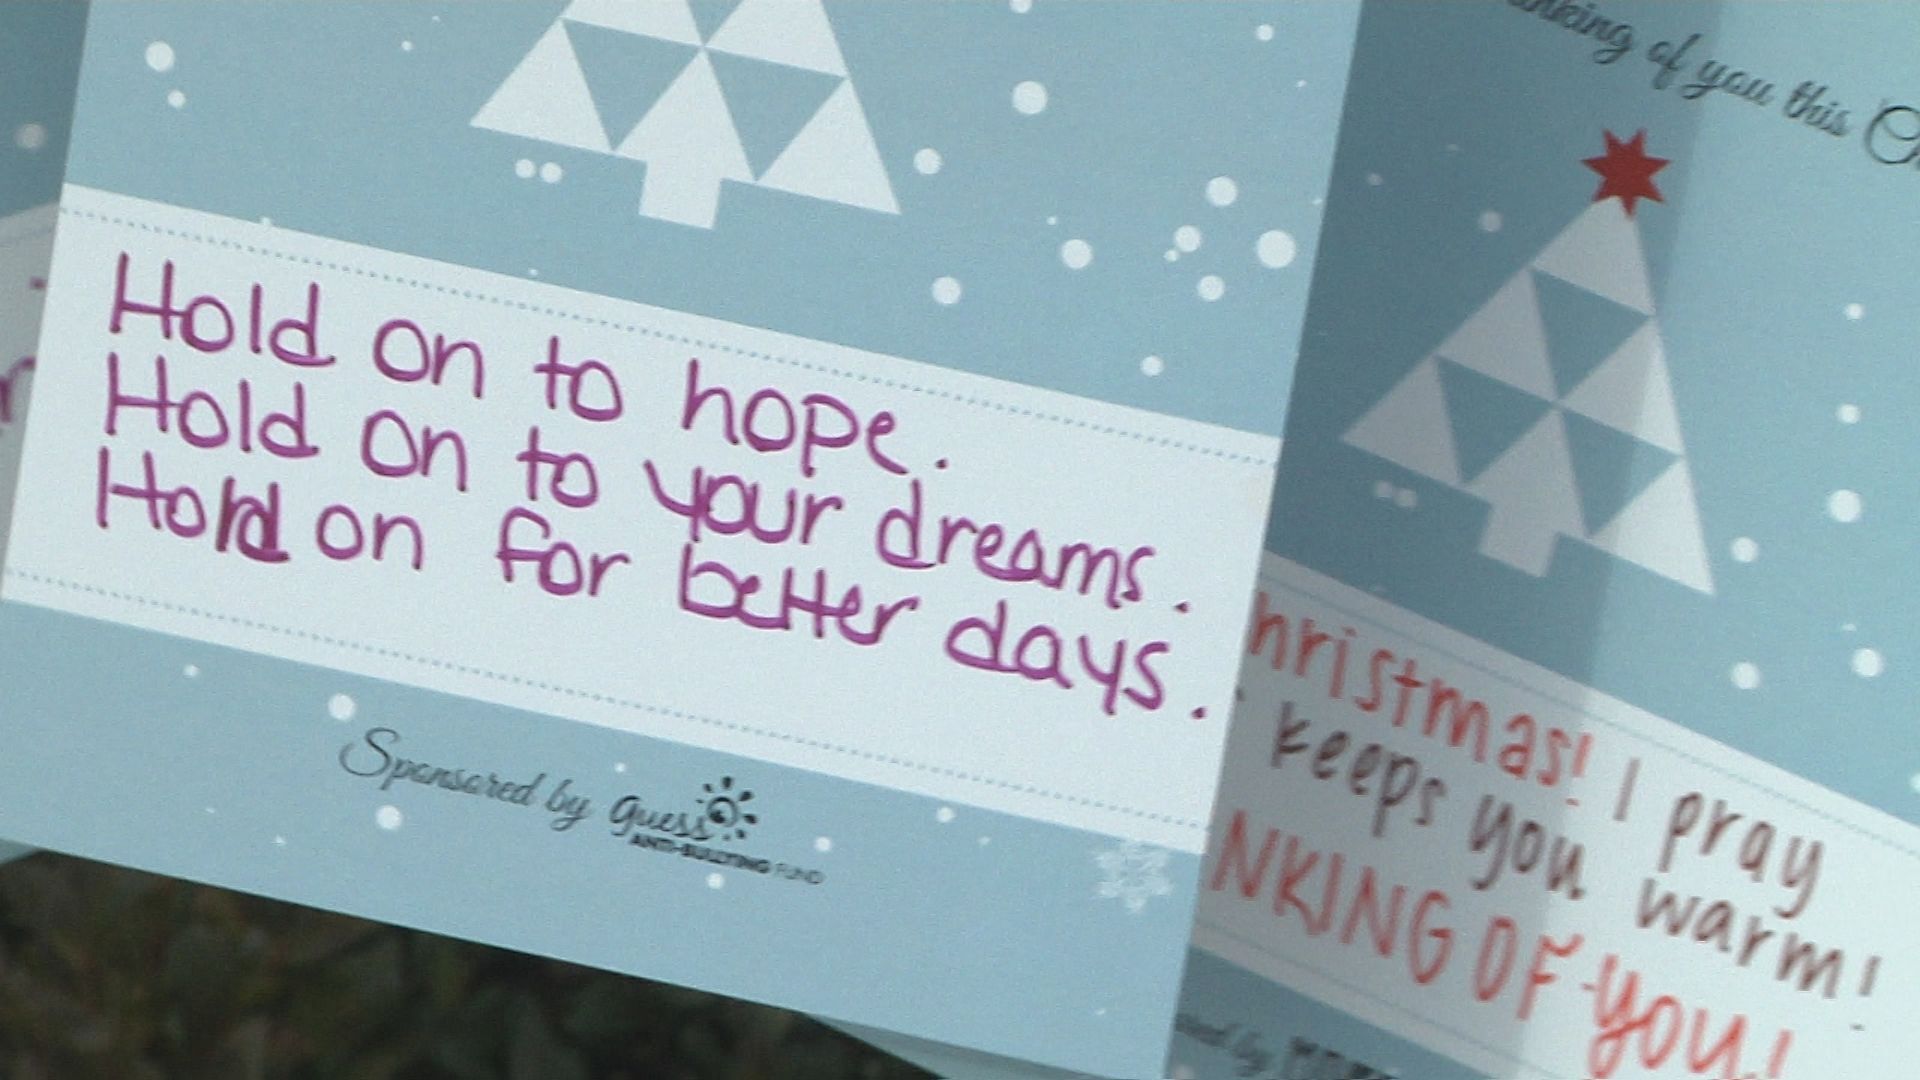 Hold on to hope.
Hold on to your dreams.
Hold on for better days.
Sponsored by guess
ANTI-BULLYING FUND
of you this
hristmas! I pray
keeps you warm!
NKING OF YOU!